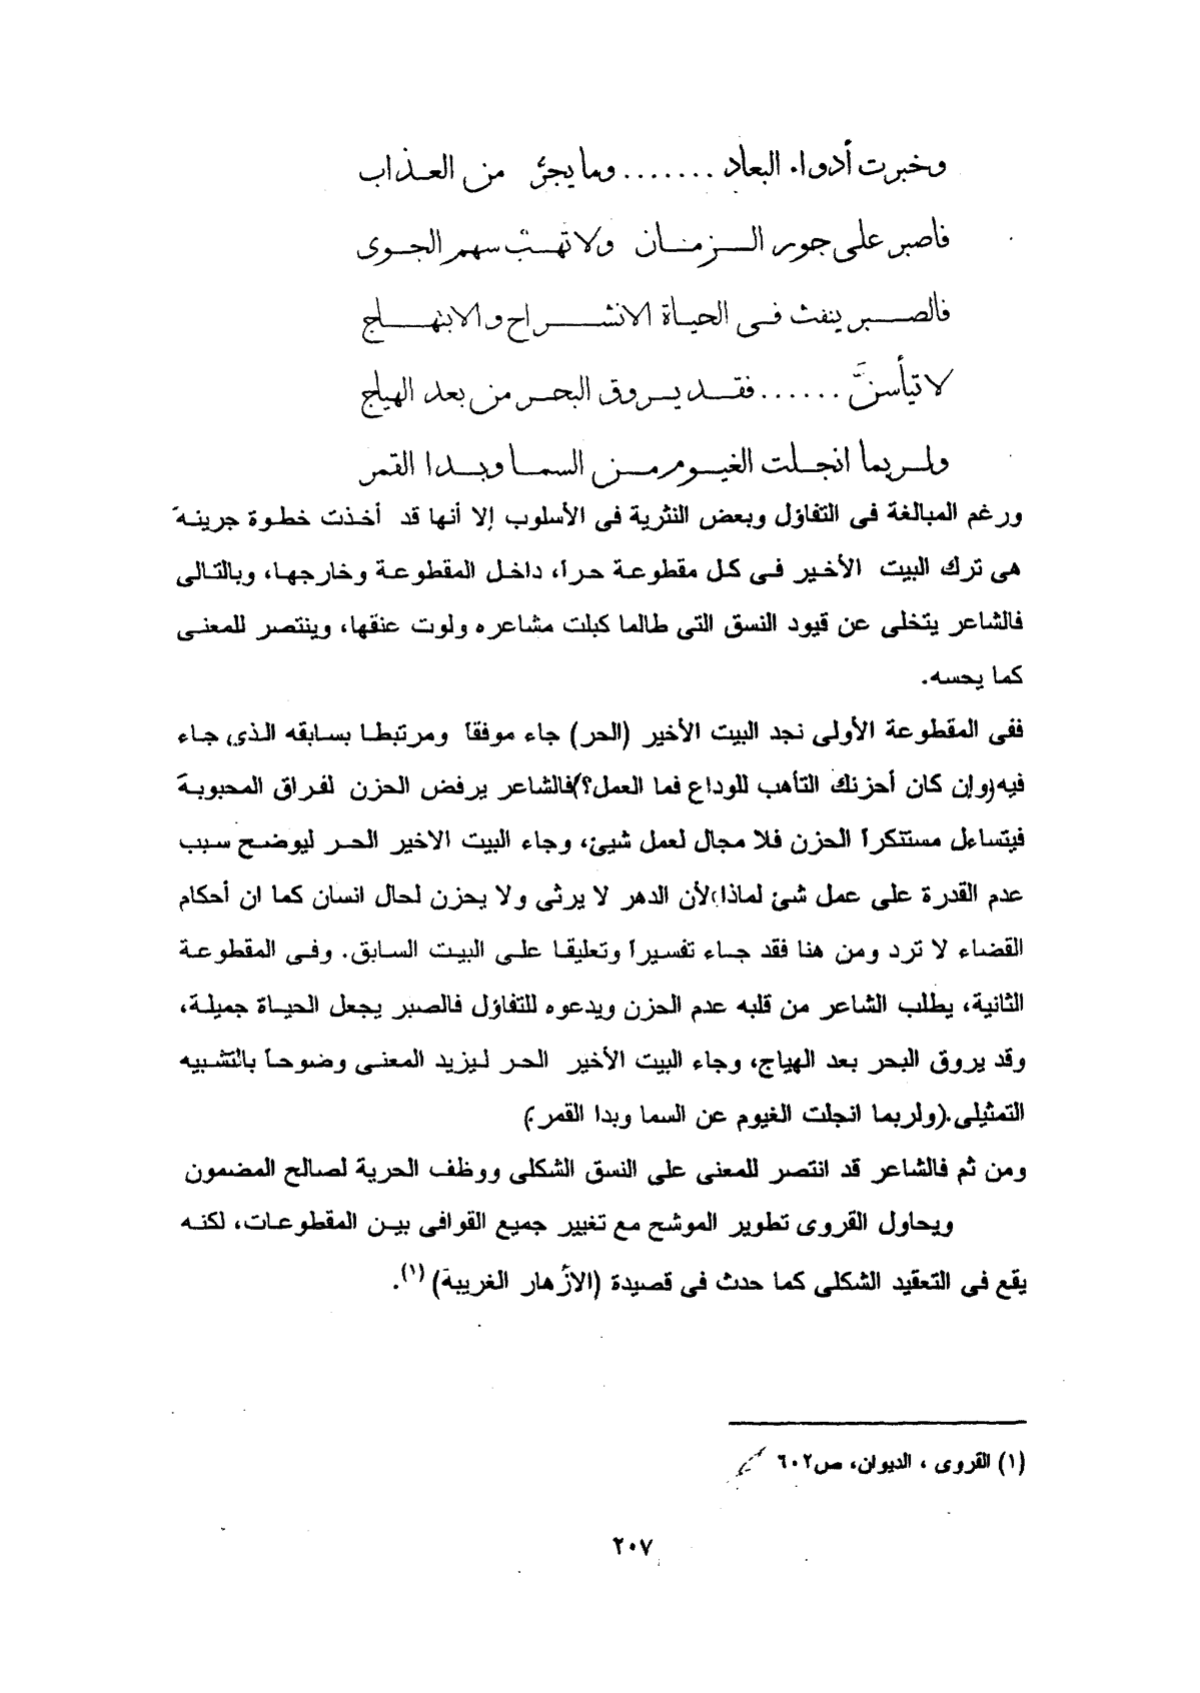 وخبرت أدواء البعاد ....... وما يجرّ من العذاب
فاصبر على جور الزمان ولا تهب سهم الجوى
فالصبر ينفث فى الحياة الانشراح والابتهاج
لا تيأسنَّ ...... فقد يروق البحر من بعد الهياج
ولربما انجلت الغيوم من السما وبدا القمر
ورغم المبالغة فى التفاؤل وبعض النثرية فى الأسلوب إلا أنها قد أخذت خطوة جرينة
هى ترك البيت الأخير فى كل مقطوعة حراً، داخل المقطوعة وخارجها، وبالتالى
فالشاعر يتخلى عن قيود النسق التى طالما كبلت مشاعره ولوت عنقها، وينتصر للمعنى
كما يحسه.
ففى المقطوعة الأولى نجد البيت الأخير (الحر) جاء موفقاً ومرتبطا بسابقه الذى جاء
فيه(وإن كان أحزنك التأهب للوداع فما العمل؟)فالشاعر يرفض الحزن لفراق المحبوبة
فيتساءل مستنكراً الحزن فلا مجال لعمل شيئ، وجاء البيت الاخير الحر ليوضح سبب
عدم القدرة على عمل شئ لماذا)لأن الدهر لا يرثى ولا يحزن لحال انسان كما ان أحكام
القضاء لا ترد ومن هنا فقد جاء تفسيراً وتعليقا على البيت السابق. وفى المقطوعة
الثانية، يطلب الشاعر من قلبه عدم الحزن ويدعوه للتفاؤل فالصبر يجعل الحياة جميلة،
وقد يروق البحر بعد الهياج، وجاء البيت الأخير الحر ليزيد المعنى وضوحاً بالتشبيه
التمثيلى.(ولربما انجلت الغيوم عن السما وبدا القمر.)
ومن ثم فالشاعر قد انتصر للمعنى على النسق الشكلى ووظف الحرية لصالح المضمون
ويحاول القروى تطوير الموشح مع تغيير جميع القوافى بين المقطوعات، لكنه
يقع فى التعقيد الشكلى كما حدث فى قصيدة (الأزهار الغريبة) (١).
(١) القروى ، الديوان، ص٦٠٢
٢٠٧